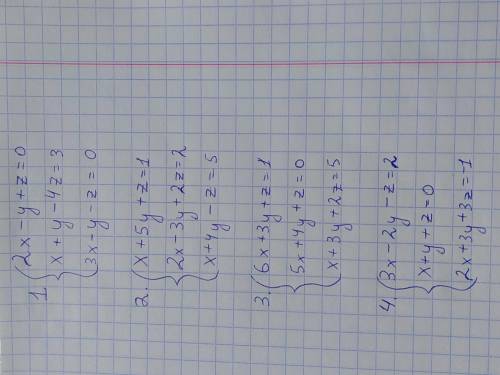 1. { 2x-y+z=0
x+y-4z=3
3x-y-z=0
2. { x+5y+z=1
2x-3y+2z=2
x+4y-z=5
3. { 6x+3y+z=1
5x+4y+z=0
x+3y+2z=5
4. { 3x-2y-z=2
x+y+z=0
2x+3y+3z=-1